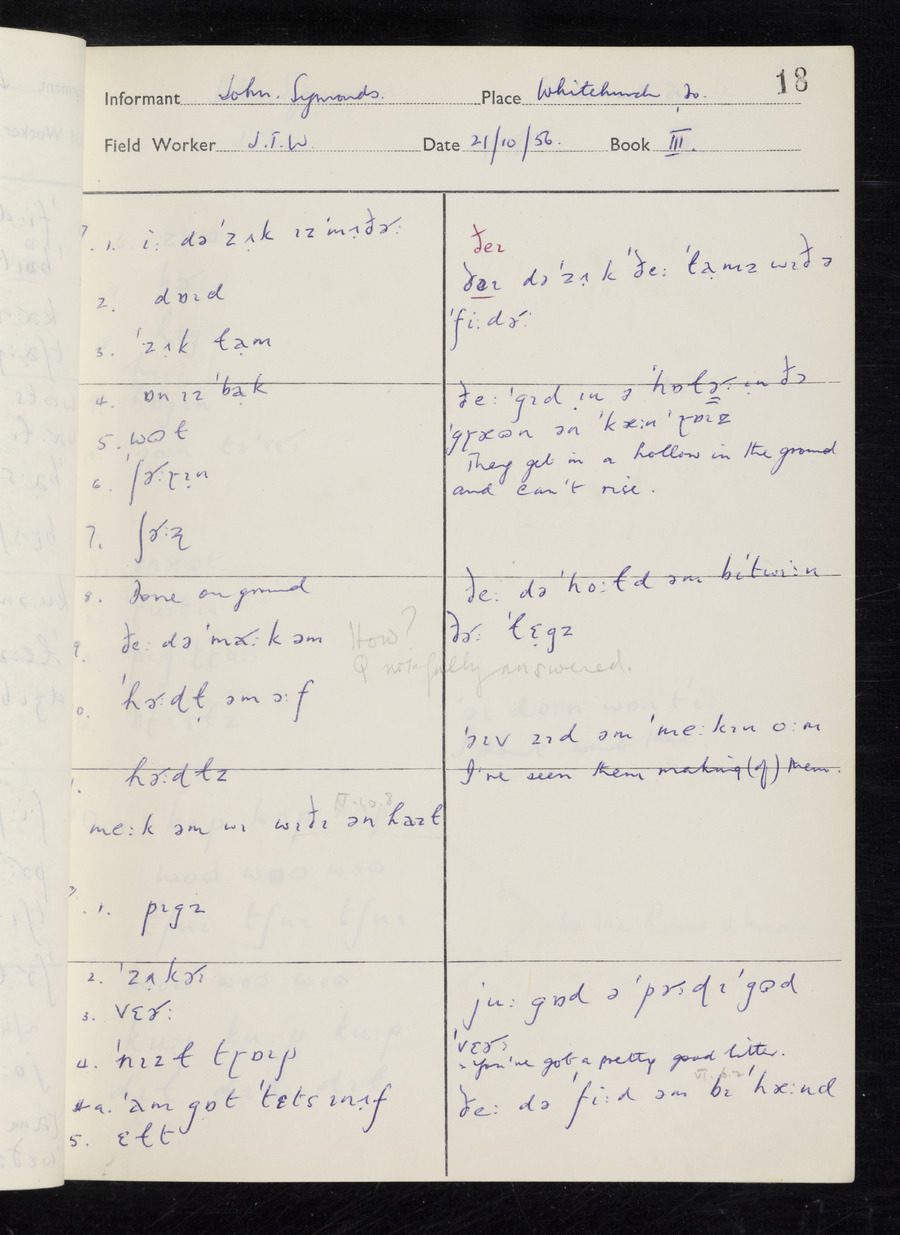 18
Informant John. Symonds. Place Whitchurch, Do.
Field Worker J.T.W. Date 21/10/56. Book III.
7. 1. i: də ˈzʌ̣k ɪz ˈmʌ̣ðɚ:
2. dɒɪd
3. ˈzʌk tạm
4. ɒn ɪz ˈbạk
5. wɒt
6. ʃɚ:ɽɪ̣n
7. ʃɚ:ʐ
8. Done on ground
9. ðe: də ˈmæ: k əm
How?
Q not fully answered.
0. ˈhɚ:ɖʈ əm ə:f
hɚ:dɫz
VI.10.8
me:k əm wɪ wɪðɪ ən haɪt
1. pɪgz
2. ˈzʌ̣kɚɪ
3. vɛɚ:
4. ˈnɪzt tɽɒɪp
a. ˈạm gɒt ˈtɛts ɪnʌ̣f
5. ɛɫt
ðeɪ
ðəɪ də ˈzʌ̣k ˈðe: ˈtạmz wɪð ə
ˈfi:dɚ:
ðe: ˈgɪd ɪ̣n ə ˈhɒɫɚ: ɪ̣n ðə
ˈgɽæʊn ən ˈkæ:nˈ ɽɒɪz
They get in a hollow in the ground
and can't rise.
ðe: də ˈho:ɫd əm bɪˈtwi:n
ðɚ: ˈɫɛ̣gz
ˈəɪv zɪd əm ˈme:kɪn o:m
I've seen them making (of) them.
ju: gɒd ə ˈpɚɪɖɪ ˈgʊd
ˈvɛɚɪ
= you've got a pretty good litter.
VI.6.2
ðe: də ˈfi:d əm bɪˈhæ:nd